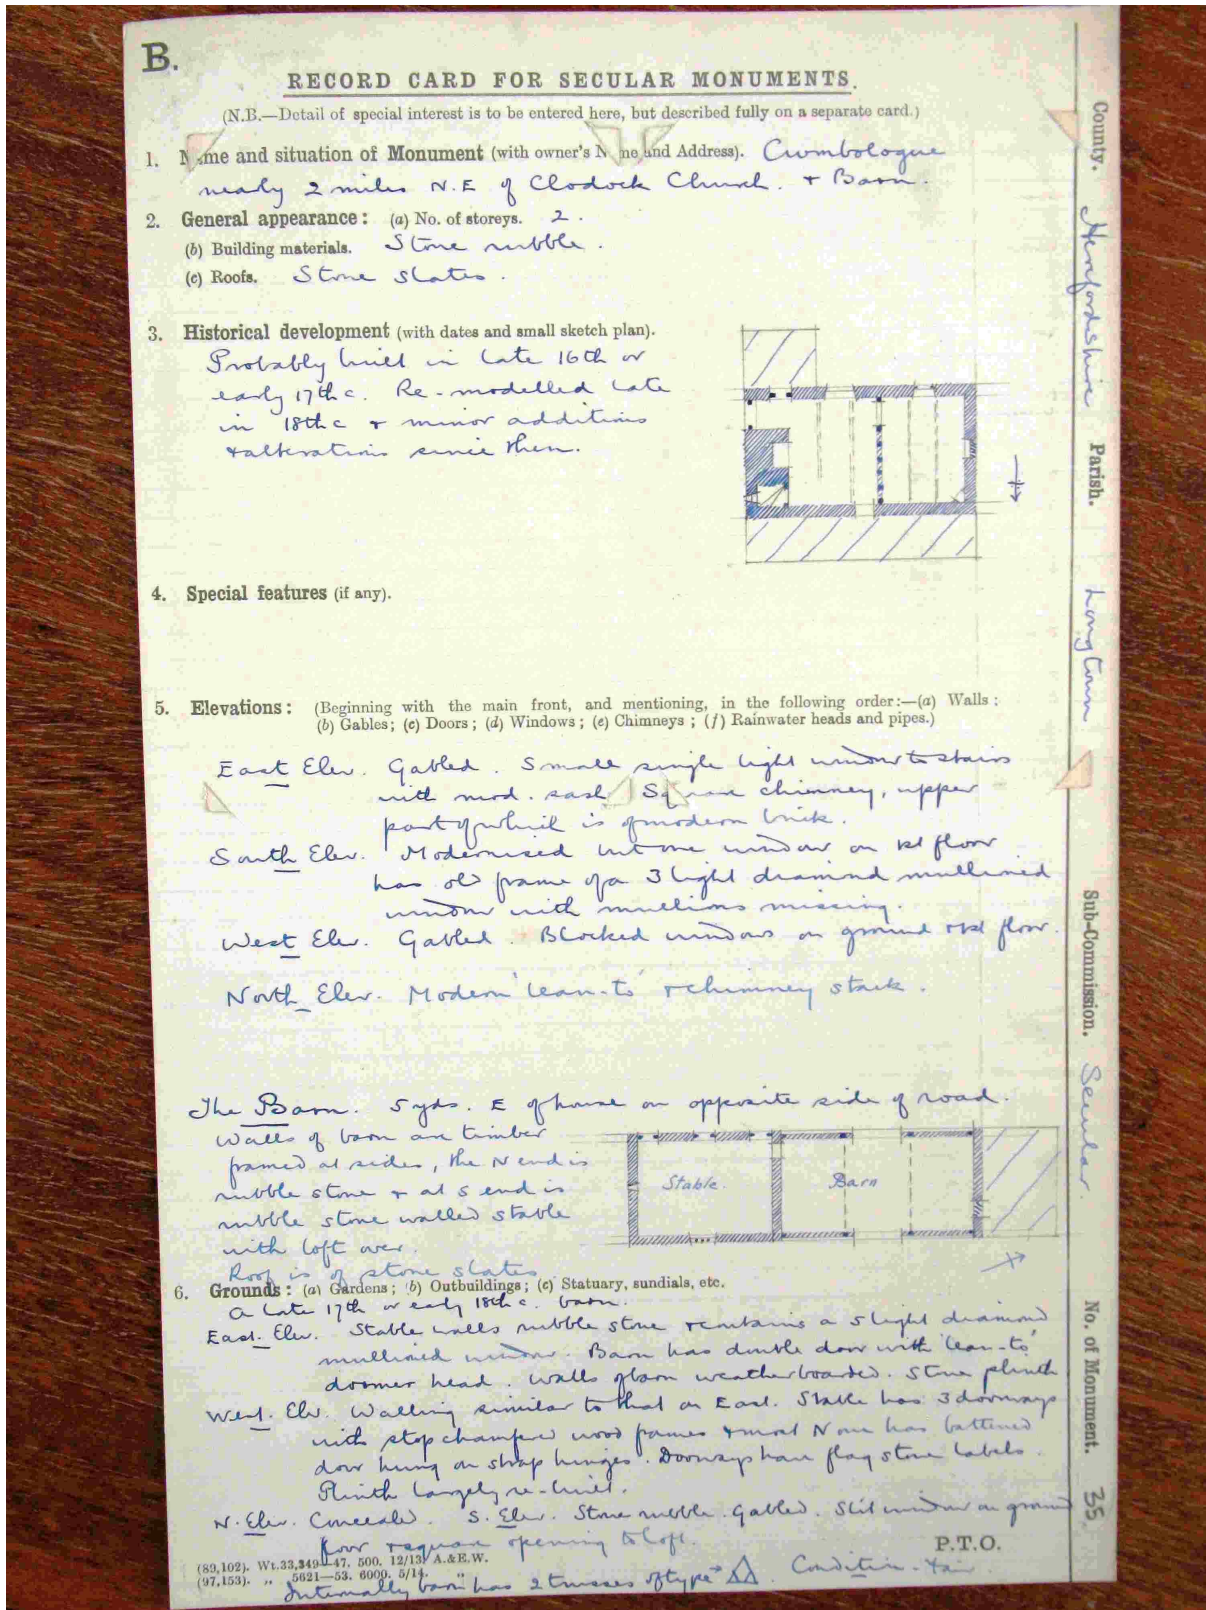 B.
RECORD CARD FOR SECULAR MONUMENTS.
(N.B.—Detail of special interest is to be entered here, but described fully on a separate card.)
1. Name and situation of Monument (with owner's Name and Address). Cwmbologue
nearly 2 miles N.E of Clodock Church. + Barn.
2. General appearance: (a) No. of storeys. 2.
(b) Building materials. Stone rubble.
(c) Roofs. Stone slates.
3. Historical development (with dates and small sketch plan).
Probably built in late 16th or
early 17th c. Re-modelled late
in 18th c + minor additions
+ alterations since then.
4. Special features (if any).
5. Elevations: (Beginning with the main front, and mentioning, in the following order:—(a) Walls;
(b) Gables; (c) Doors; (d) Windows; (e) Chimneys; (f) Rainwater heads and pipes.)
East Elev. Gabled. Small single light window to stairs
with mod. sash. Square chimney, upper
part of which is of modern brick.
South Elev. Modernised but one window on 1st floor
has old frame of a 3 light diamond mullioned
window with mullions missing.
West Elev. Gabled. Blocked windows on ground + 1st floor.
North Elev. Modern 'lean-to' + chimney stack.
The Barn. 5 yds. E of house on opposite side of road.
Walls of barn are timber
framed at sides, the N end is
rubble stone + at S end is
rubble stone walled stable
with loft over.
Roof is of stone slates
Stable.
Barn
6. Grounds: (a) Gardens; (b) Outbuildings; (c) Statuary, sundials, etc.
A late 17th or early 18th c. barn.
East. Elev. Stable walls rubble stone + contains a 5 light diamond
mullioned window. Barn has double door with 'lean-to'
doormer head. Walls of barn weatherboarded. Stone plinth
West. Elv. Walling similar to that on East. Stable has 3 doorways
with stop champered wood frames + most N one has battened
door hung on strap hinges. Doorways have flag stone labels.
Plinth largely re-built.
N. Elev. Concealed. S. Elev. Stone rubble. Gabled. Slit window on ground
floor + square opening to loft.
P.T.O.
(89,102). Wt.33,349—47. 500. 12/13. A.&E.W.
(97,153). „ 5621—53. 6000. 5/14. „
Internally barn has 2 trusses of type. Condition - fair.
County. Herefordshire Parish. Longtown Sub-Commission. Secular. No. of Monument. 35